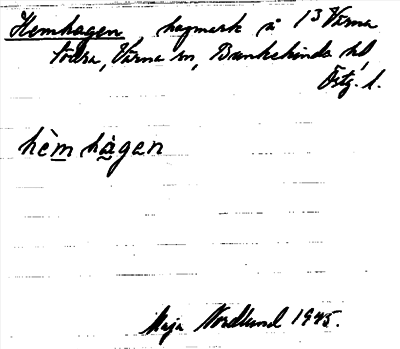 Hemhagen, hagmark å 13 Värna
södra, Värna sn, Bankekinds hd
Östg. l.
hèm hàgen
Maja Nordlund 1945.